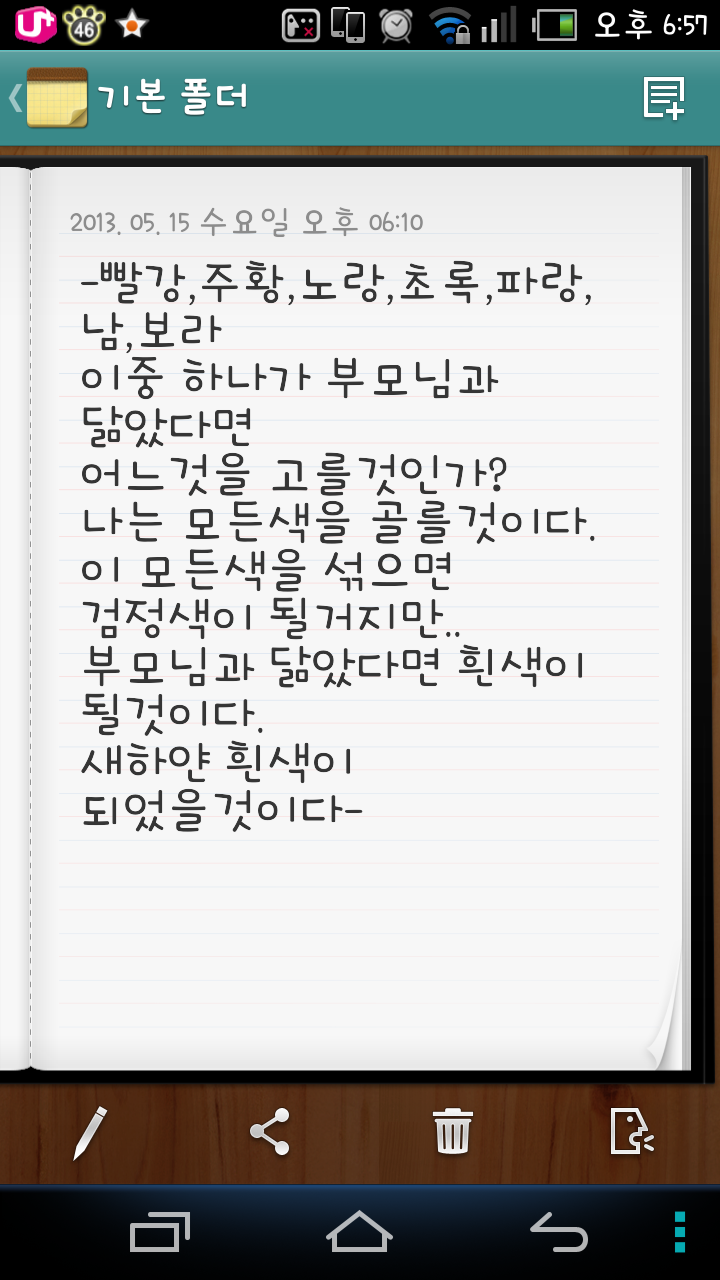 U+ 46 오후 6:57
기본 폴더
2013. 05. 15 수요일 오후 06:10
-빨강,주황,노랑,초록,파랑,
남,보라
이중 하나가 부모님과
닮았다면
어느것을 고를것인가?
나는 모든색을 골를것이다.
이 모든색을 섞으면
검정색이 될거지만..
부모님과 닮았다면 흰색이
될것이다.
새하얀 흰색이
되었을것이다-